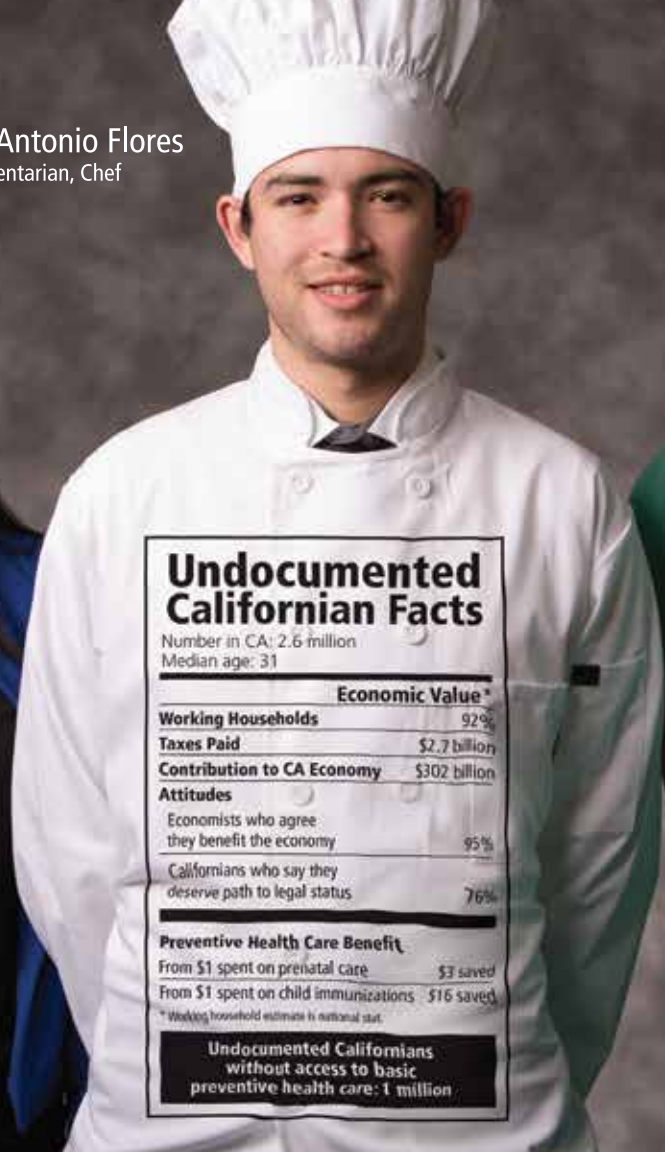 Antonio Flores
entarian, Chef
Undocumented
Californian Facts
Number in CA: 2.6 million
Median age: 31
Economic Value*
Working Households 92%
Taxes Paid $2.7 billion
Contribution to CA Economy $302 billion
Attitudes
Economists who agree
they benefit the economy 95%
Californians who say they
deserve path to legal status 76%
Preventive Health Care Benefit
From $1 spent on prenatal care $3 saved
From $1 spent on child immunizations $16 saved
* Working household estimate is national stat.
Undocumented Californians
without access to basic
preventive health care: 1 million